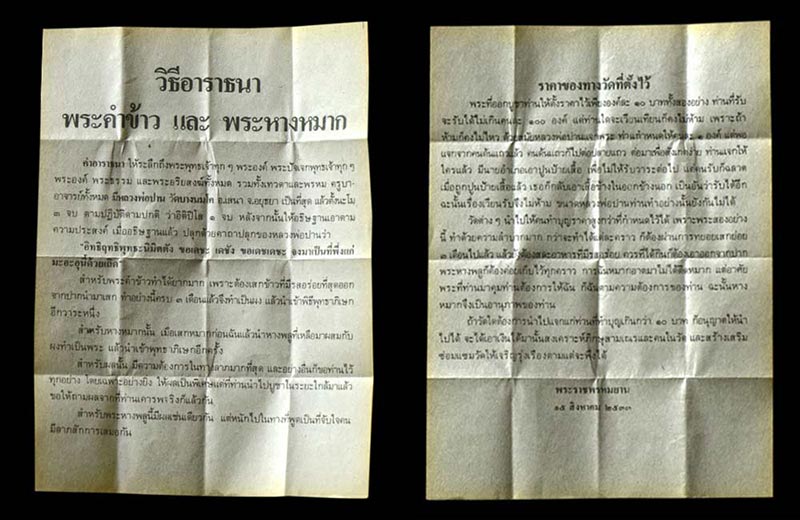 วิธีอาราธนา
พระคำข้าว และ พระหางหมาก
คำอาราธนา ให้ระลึกถึงพระพุทธเจ้าทุก ๆ พระองค์ พระปัจเจกพุทธเจ้าทุก ๆ
พระองค์ พระธรรม และพระอริยสงฆ์ทั้งหมด รวมทั้งเทวดาและพรหม ครูบา-
อาจารย์ทั้งหมด มีหลวงพ่อปาน วัดบางนมโค อ.เสนา จ.อยุธยา เป็นที่สุด แล้วตั้งนะโม
๓ จบ ตามปฏิบัติตามปกติ ว่าอิติปิโส ๑ จบ หลังจากนั้นให้อธิษฐานเอาตาม
ความประสงค์ เมื่ออธิษฐานแล้ว ปลุกด้วยคาถาปลุกของหลวงพ่อปานว่า
"อิทธิฤทธิพุทธะนิมิตตัง ขอเดชะ เดชัง ขอเดชเดชะ จงมาเป็นที่พึ่งแก่
มะอะอุนี้ด้วยเถิด"
สำหรับพระคำข้าวทำได้ยากมาก เพราะต้องเสกข้าวที่มีรสอร่อยที่สุดออก
จากปากนำมาเสก ทำอย่างนี้ครบ ๓ เดือนแล้วจึงทำเป็นผง แล้วนำเข้าพิธีพุทธาภิเษก
อีกวาระหนึ่ง
สำหรับหางหมากนั้น เมื่อเสกหมากก่อนฉันแล้วนำหางพลูที่เหลือมาผสมกับ
ผงทำเป็นพระ แล้วนำเข้าพุทธาภิเษกอีกครั้ง
สำหรับผลนั้น มีความต้องการในทางลาภมากที่สุด และอย่างอื่นก็ขอท่านไว้
ทุกอย่าง โดยเฉพาะอย่างยิ่ง ให้ผลเป็นพิเศษแด่ที่ท่านนำไปบูชาในระยะใกล้มาแล้ว
ขอให้ถามผลจากที่ท่านเคารพจริงก็แล้วกัน
สำหรับพระหางพลูนี้มีผลเช่นเดียวกัน แต่หนักไปในทางที่พูดเป็นที่จับใจคน
มีลาภสักการเสมอกัน
ราคาของทางวัดที่ตั้งไว้
พระที่ออกบูชาท่านให้ตั้งราคาไว้เพียงองค์ละ ๑๐ บาททั้งสองอย่าง ท่านที่รับ
จะรับได้ไม่เกินคนละ ๑๐๐ องค์ แต่ท่านใดจะเวียนเทียนก็คงไม่ห้าม เพราะถ้า
ห้ามก็คงไม่ไหว ด้วยสมัยหลวงพ่อปานแจกพระ ท่านกำหนดให้คนละ ๑ องค์ แต่พอ
แจกจากคนต้นแถวแล้ว คนต้นแถวก็ไปต่อปลายแถว ต่อมาเพื่อตั้งเก่งง่าย ท่านแจกให้
ใครแล้ว มีนายอำเภอเอาปูนป้ายเสื้อ เพื่อไม่ให้รับวาระต่อไป แต่คนรับก็ฉลาด
เมื่อถูกปูนป้ายเสื้อแล้ว เธอก็กลับเอาเสื้อข้างในออกข้างนอก เป็นอันว่ารับได้อีก
ฉะนั้นเรื่องเวียนรับจึงไม่ห้าม ขนาดหลวงพ่อปานท่านทำอย่างนั้นยังกันไม่ได้
วัดต่าง ๆ นำไปให้คนทำบุญราคาสูงกว่าที่กำหนดไว้ได้ เพราะพระสองอย่าง
นี้ ทำด้วยความลำบากมาก กว่าจะทำได้แต่ละคราว ก็ต้องผ่านการทยอยเสกย่อย
๓ เดือนไปแล้ว แล้วยังต้องสละอาหารที่มีรสอร่อย ควรที่ได้กินก็ต้องเอาออกจากปาก
พระหางพลูก็ต้องค่อยเก็บไว้ทุกคราว การฉันหมากอาตมาไม่ได้ติดหมาก แต่อาศัย
พระที่ท่านมาคุมท่านต้องการให้ฉัน ก็ฉันตามความต้องการของท่าน ฉะนั้นหาง
หมากจึงเป็นอานุภาพของท่าน
ถ้าวัดใดต้องการนำไปแจกแก่ท่านที่ทำบุญเกินกว่า ๑๐ บาท ก็อนุญาตให้นำ
ไปได้ จะได้เอาเงินได้มานั้นสงเคราะห์ภิกษุสามเณรและคนในวัด และสร้างเสริม
ซ่อมแซมวัดให้เจริญรุ่งเรืองตามแต่จะพึงได้
พระราชพรหมยาน
๑๕ สิงหาคม ๒๕๓๓